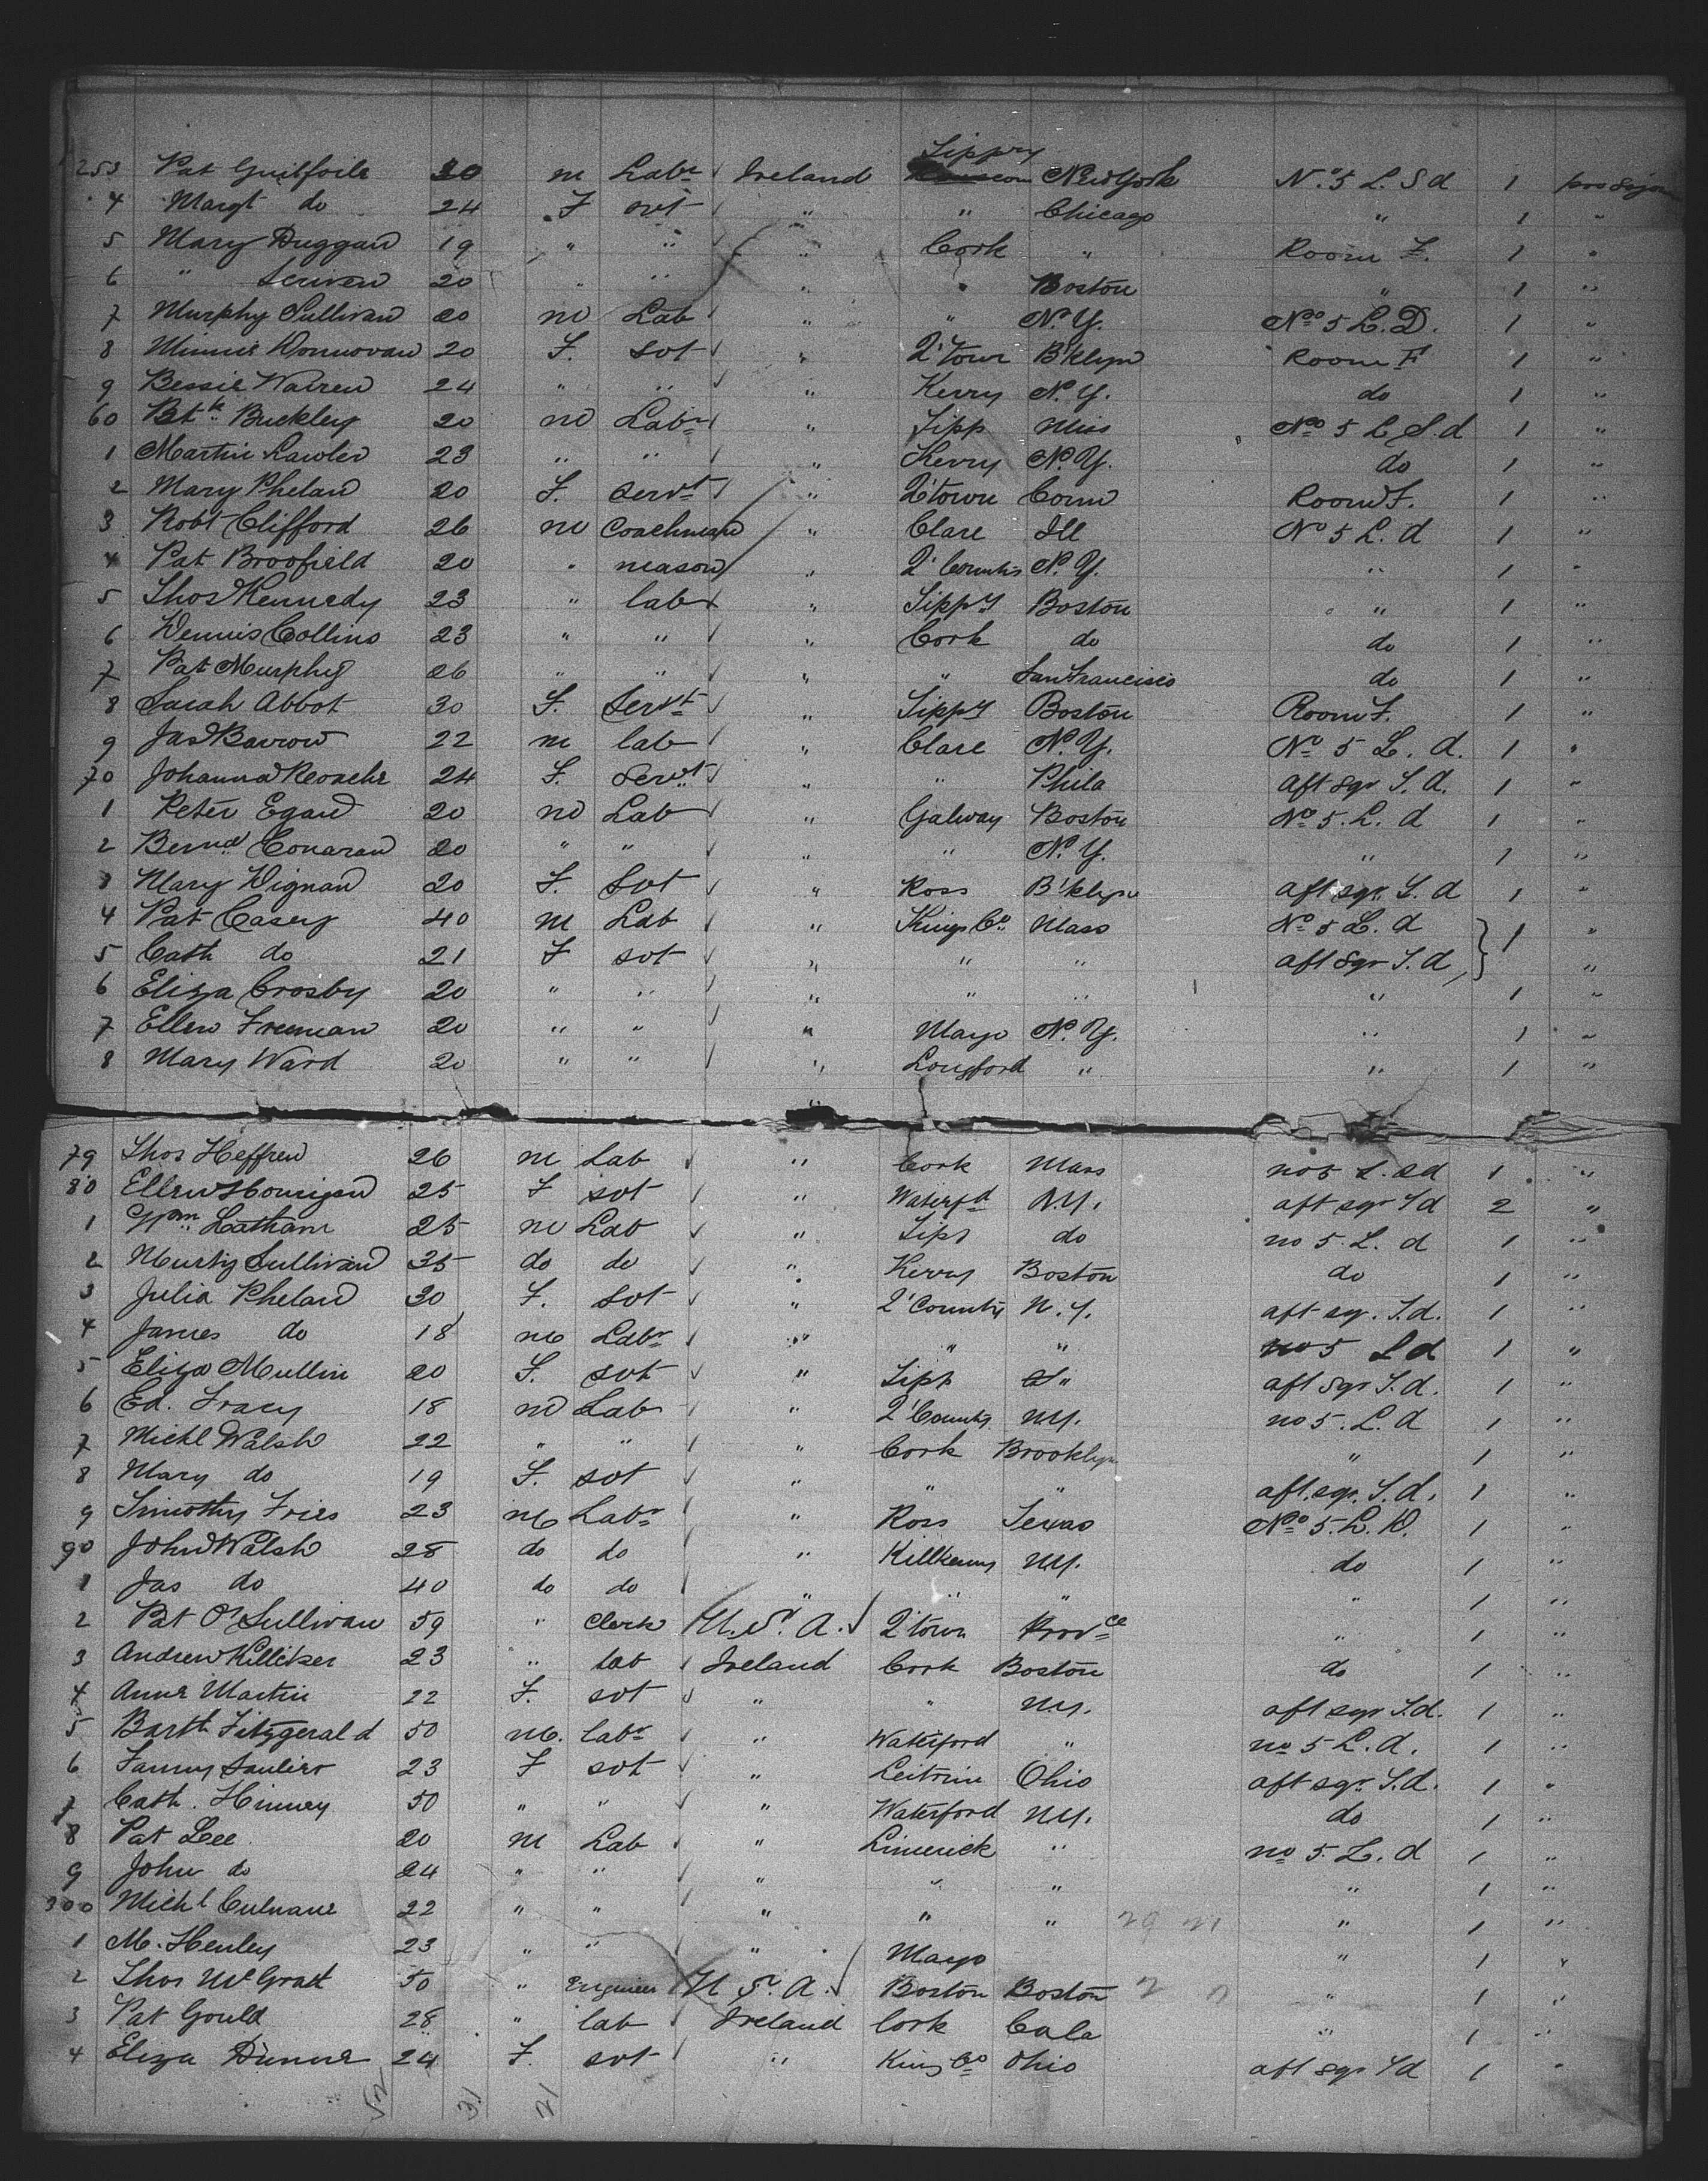 Tippry
253 Pat Guilfoile 20 m Labr Ireland New York No. 5 L. S d 1 pro Sojourn
4 Margt do 24 F svt " " Chicago " 1 "
5 Mary Duggan 19 " " " Cork " Room F. 1 "
6 " Scriven 20 " " " " Boston " 1 "
7 Murphy Sullivan 20 m Lab " " N.Y. No 5 L. D. 1 "
8 Minnie Donnovan 20 F. svt " Q'Town B'klyn Room F 1 "
9 Bessie Warren 24 " " " Kerry N.Y. do 1 "
60 Btk Buckley 20 m Labr " Tipp Miss No 5 L S.d 1 "
1 Martin Lawler 23 " " " Kerry N.Y. do 1 "
2 Mary Phelan 20 F. Servt " Q'town Conn Room F. 1 "
3 Robt Clifford 26 m Coachman " Clare Ill No 5 L. d 1 "
4 Pat Broofield 20 " mason " Q' County N.Y. " 1 "
5 Thos Kennedy 23 " lab " Tippy Boston " 1 "
6 Dennis Collins 23 " " " Cork do do 1 "
7 Pat Murphy 26 " " " " San Francisco do 1 "
8 Sarah Abbot 30 F. Servt " Tippy Boston Room F. 1 "
9 Jas Barrow 22 m lab " Clare N.Y. No 5 L. d. 1 "
70 Johanna Roache 24 F. Servt " " Phila aft sqr S. d. 1 "
1 Peter Egan 20 m Lab " Galway Boston No 5. L. d 1 "
2 Bernd Conaran 20 " " " " N.Y. " 1 "
3 Mary Dignan 20 F. Svt " Ross B'klyn aft sqr. S. d 1 "
4 Pat Casey 40 m Lab " Kings Co. Mass No 5 L. d 1 "
5 Cath do 21 F svt " " " aft sqr S. d "
6 Eliza Crosby 20 " " " " " " 1 "
7 Ellen Freeman 20 " " " Mayo N.Y. " 1 "
8 Mary Ward 20 " " " Longford " " 1 "
79 Thos Heffren 26 m Lab " Cork Mass no 5 L. Sd 1 "
80 Ellen Hourigan 25 F svt " Waterfd N.Y. aft sqr S d 2 "
1 Wm Latham 25 m Lab " Tipp do no 5. L. d 1 "
2 Murtig Sullivan 35 do do " Kerry Boston do 1 "
3 Julia Phelan 30 F. svt " Q'County N.Y. aft sq. S. d. 1 "
4 James do 18 m Labr " " " no 5 L d 1 "
5 Eliza Mullin 20 F. svt " Tipp " aft sqr S. d. 1 "
6 Ed. Tracy 18 m Lab " Q'County N.Y. no 5. L. d 1 "
7 Michl Walsh 22 " " " Cork Brooklyn " 1 "
8 Mary do 19 F. svt " " " aft sqr. S. d. 1 "
9 Timothy Fries 23 m Labr " Ross Texas No 5. L. D. 1 "
90 John Walsh 28 do do " Killkenny N.Y. do 1 "
1 Jas do 40 do do " " " " 1 "
2 Pat O'Sullivan 59 " Clerk U. S. A. Q'town Provce " 1 "
3 Andrew Killiker 23 " lab Ireland Cork Boston do 1 "
4 Anne Martin 22 F. svt " " N.Y. aft sqr S. d. 1 "
5 Barth Fitzgerald 50 m. labr " Waterford " no 5 L. d. 1 "
6 Fanny 23 F svt " Leitrim Ohio aft sqr. S. d. 1 "
7 Cath. Hinney 50 " " " Waterford N.Y. do 1 "
8 Pat Lee 20 m Lab " Limerick " no 5. L. d 1 "
9 John do 24 " " " " " " 1 "
300 Michl Culnane 22 " " " " " " 1 "
1 M. Henley 23 " " " Mayo " 1 "
2 Thos McGrath 50 " Engineer U. S. A. Boston Boston " 1 "
3 Pat Gould 28 " lab Ireland Cork Cala " 1 "
4 Eliza Dunne 24 F. svt " King Co Ohio aft sqr S d 1 "
52 31 21